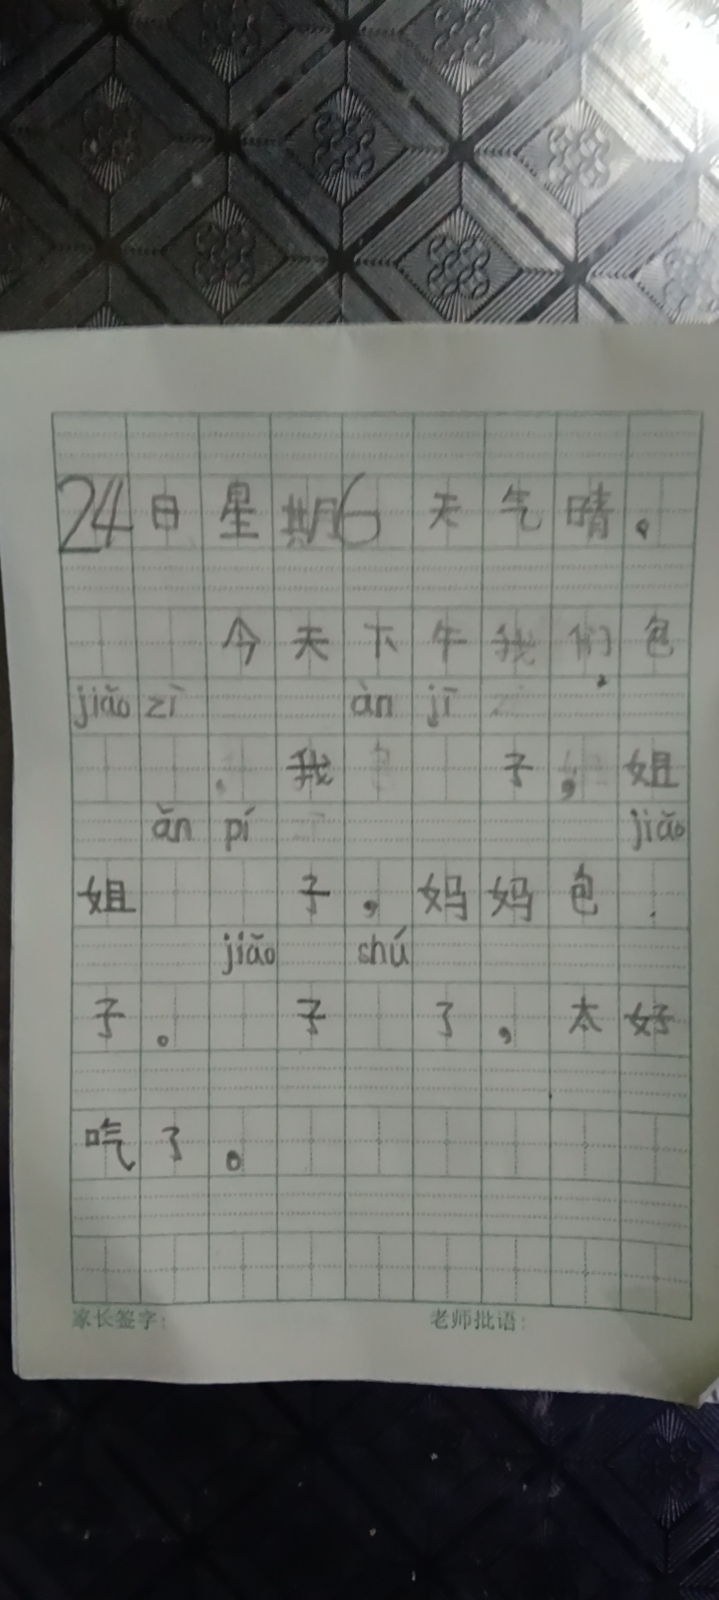 24日星期6天气晴。
今天下午我们包
jiǎo zì àn jī
我 子，姐
ǎn pí jiǎo
姐 子，妈妈包
jiǎo shú
子。 子 了，太好
吃了。
家长签字： 老师批语：